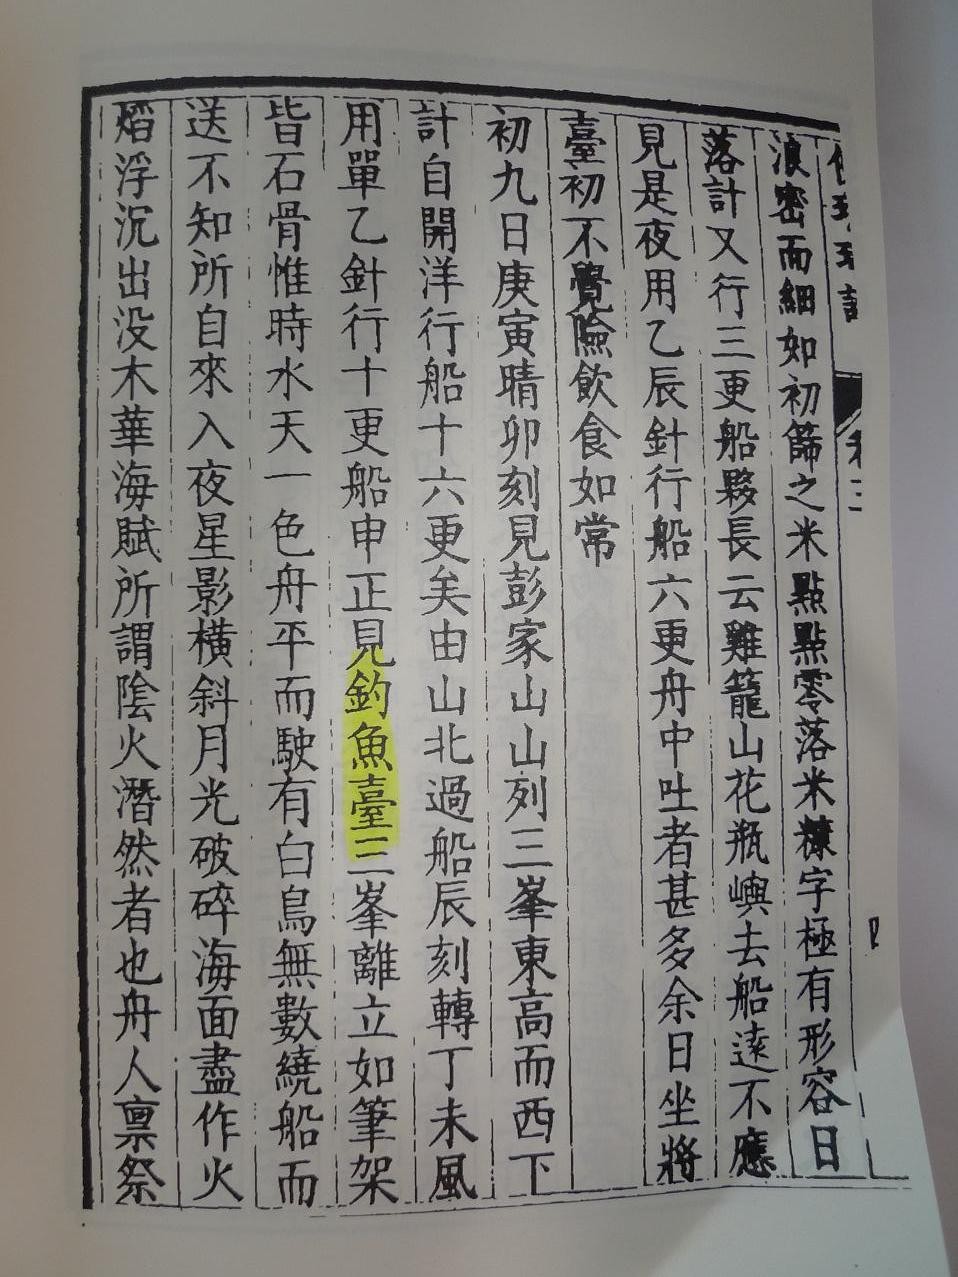 浪密而細如初篩之米點點零落米糠字極有形容日
落計又行三更船夥長云雞籠山花瓶嶼去船遠不應
見是夜用乙辰針行船六更舟中吐者甚多余日坐將
臺初不覺險飲食如常
初九日庚寅晴卯刻見彭家山山列三峯東高而西下
計自開洋行船十六更矣由山北過船辰刻轉丁未風
用單乙針行十更船申正見釣魚臺三峯離立如筆架
皆石骨惟時水天一色舟平而駛有白鳥無數繞船而
送不知所自來入夜星影橫斜月光破碎海面盡作火
熖浮沉出没木華海賦所謂陰火潛然者也舟人禀祭